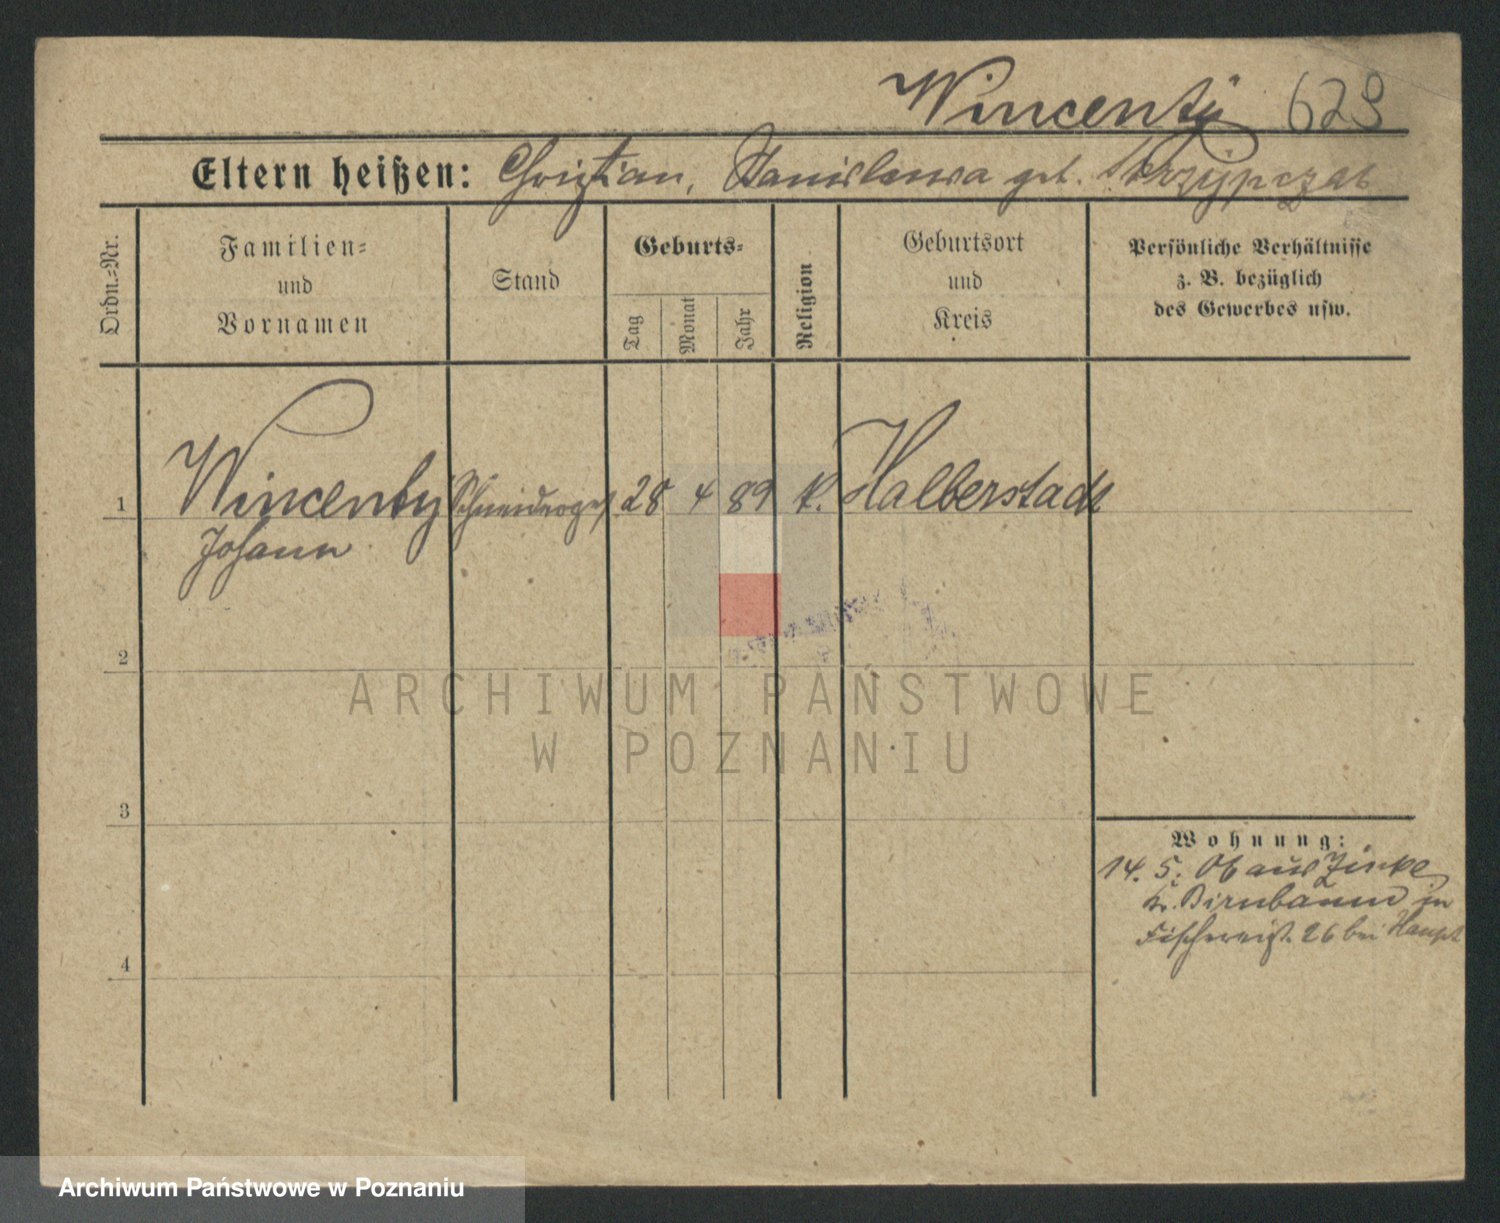 Wincenty 623
Eltern heißen: Christian, Stanislawa geb. Skrzypczak
Ordn.=Nr.
Familien=
und
Vornamen
Stand
Geburts=
Tag
Monat
Jahr
Religion
Geburtsort
und
Kreis
Persönliche Verhältnisse
z. B. bezüglich
des Gewerbes usw.
1 Wincenty Schneiderges. 28 4 89 k. Halberstadt
Johann
2
ARCHIWUM PAŃSTWOWE
W POZNANIU
3
Wohnung:
14. 5. aus Zirke
K. Birnbaum in
Fischereist. 26 bei Haupt
4
Archiwum Państwowe w Poznaniu